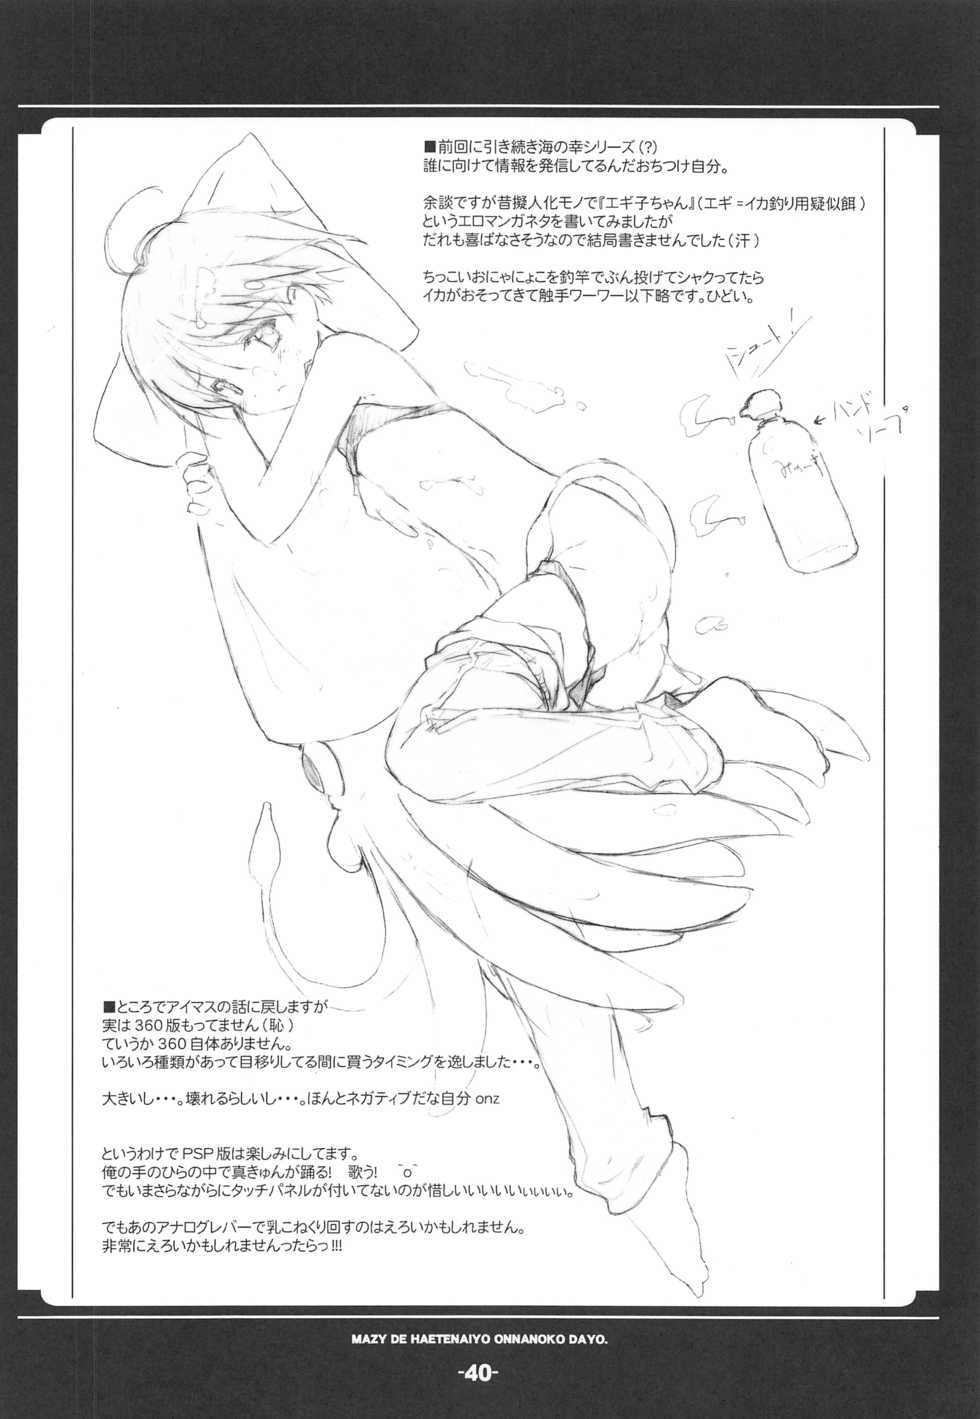 ■前回に引き続き海の幸シリーズ（？）
誰に向けて情報を発信してるんだおちつけ自分。
余談ですが昔擬人化モノで『エギ子ちゃん』（エギ=イカ釣り用疑似餌）
というエロマンガネタを書いてみましたが
だれも喜ばなさそうなので結局書きませんでした（汗）
ちっこいおにゃにょこを釣竿でぶん投げてシャクってたら
イカがおそってきて触手ワーワー以下略です。ひどい。
シュート！
←ハンド
ソープ
■ところでアイマスの話に戻しますが
実は360版もってません（恥）
ていうか360自体ありません。
いろいろ種類があって目移りしてる間に買うタイミングを逸しました・・・。
大きいし・・・。壊れるらしいし・・・。ほんとネガティブだな自分 onz
というわけでPSP版は楽しみにしてます。
俺の手のひらの中で真きゅんが踊る！　歌う！　＾o＾
でもいまさらながらにタッチパネルが付いてないのが惜しいいいいいぃぃぃぃ。
でもあのアナログレバーで乳こねくり回すのはえろいかもしれません。
非常にえろいかもしれませんったらっ!!!
MAZY DE HAETENAIYO ONNANOKO DAYO.
-40-